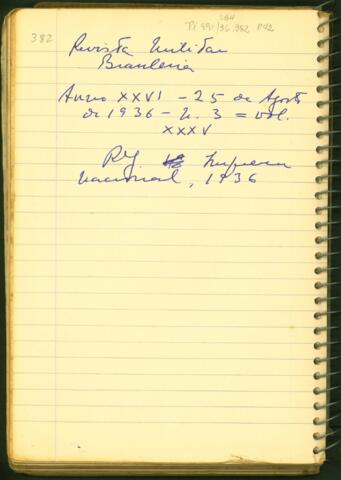 382
Pi 991/36.382 P42
Revista Militar
Brasileira
Anno XXVI - 25 de Agosto
de 1936 - n. 3 = vol.
XXXV
RJ. Imprensa
Nacional, 1936